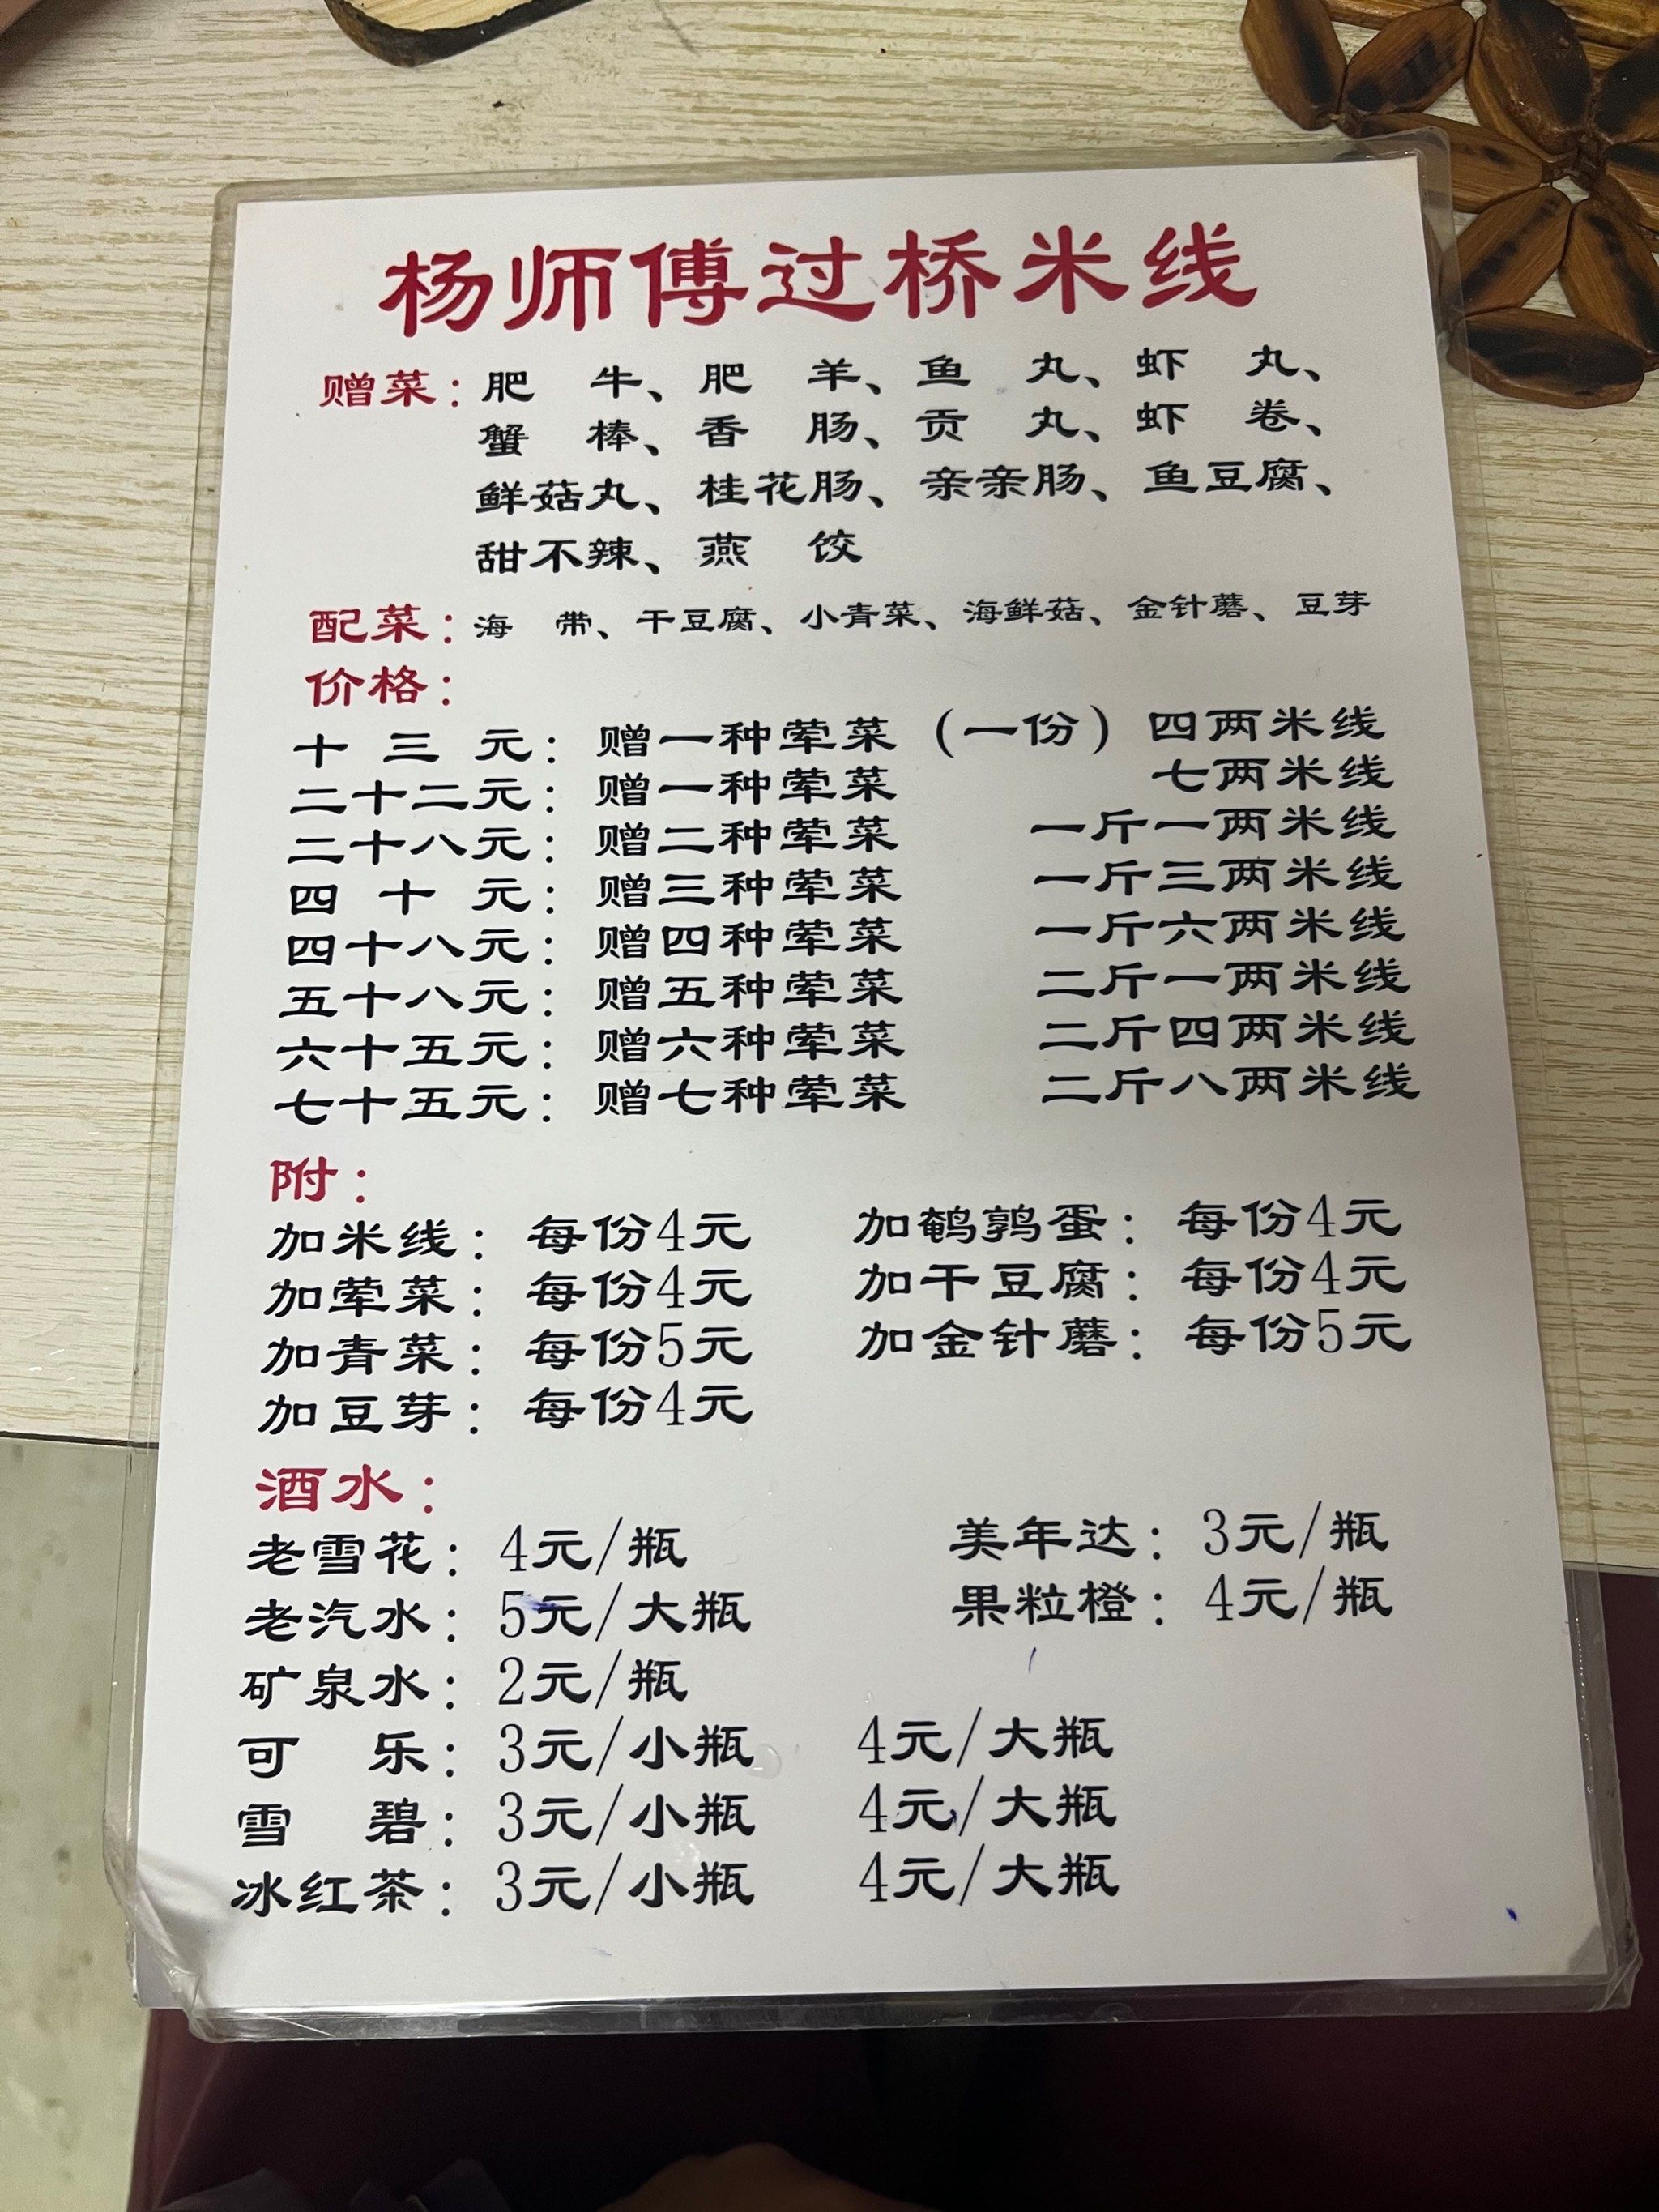 杨师傅过桥米线
赠菜：肥 牛、肥 羊、鱼 丸、虾 丸、
蟹 棒、香 肠、贡 丸、虾 卷、
鲜菇丸、桂花肠、亲亲肠、鱼豆腐、
甜不辣、燕 饺
配菜：海 带、干豆腐、小青菜、海鲜菇、金针蘑、豆芽
价格：
十 三 元：赠一种荤菜（一份）四两米线
二十二元：赠一种荤菜 七两米线
二十八元：赠二种荤菜 一斤一两米线
四 十 元：赠三种荤菜 一斤三两米线
四十八元：赠四种荤菜 一斤六两米线
五十八元：赠五种荤菜 二斤一两米线
六十五元：赠六种荤菜 二斤四两米线
七十五元：赠七种荤菜 二斤八两米线
附：
加米线：每份4元 加鹌鹑蛋：每份4元
加荤菜：每份4元 加干豆腐：每份4元
加青菜：每份5元 加金针蘑：每份5元
加豆芽：每份4元
酒水：
老雪花：4元/瓶 美年达：3元/瓶
老汽水：5元/大瓶 果粒橙：4元/瓶
矿泉水：2元/瓶
可 乐：3元/小瓶 4元/大瓶
雪 碧：3元/小瓶 4元/大瓶
冰红茶：3元/小瓶 4元/大瓶